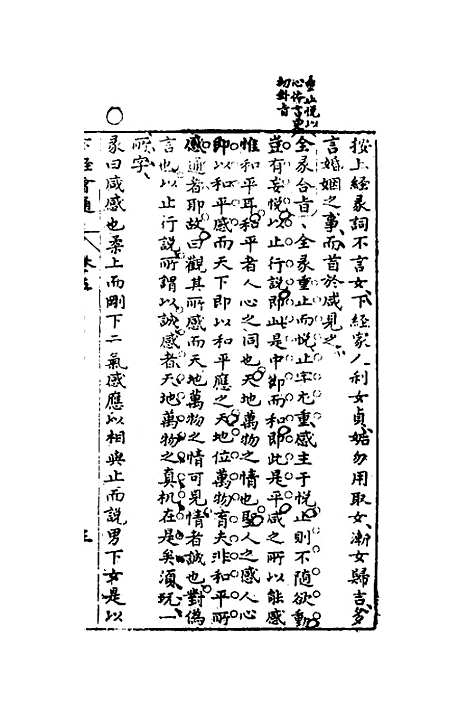 重止悦以
心体言更
切卦旨
按上經彖詞不言女下經家人利女貞姤勿用取女漸女歸吉多
言婚姻之事而首於咸見之
全彖合旨全彖重止而悦止字尤重感主于悦止則不隨欲動
豈有妄悦以止行説即此是中節而和即此是平咸之所以能感
惟和平耳和平者人心之同也天地萬物之情也聖人之感人心
即以和平感而天下即以和平應之天地位萬物育夫非和平所
感通者耶故曰觀其所感而天地萬物之情可見情者誠也對偽
言也以止行説所謂以誠感者天地萬物之真机在是矣須玩一
所字
○
彖曰咸感也柔上而剛下二氣感應以相與止而説男下女是以